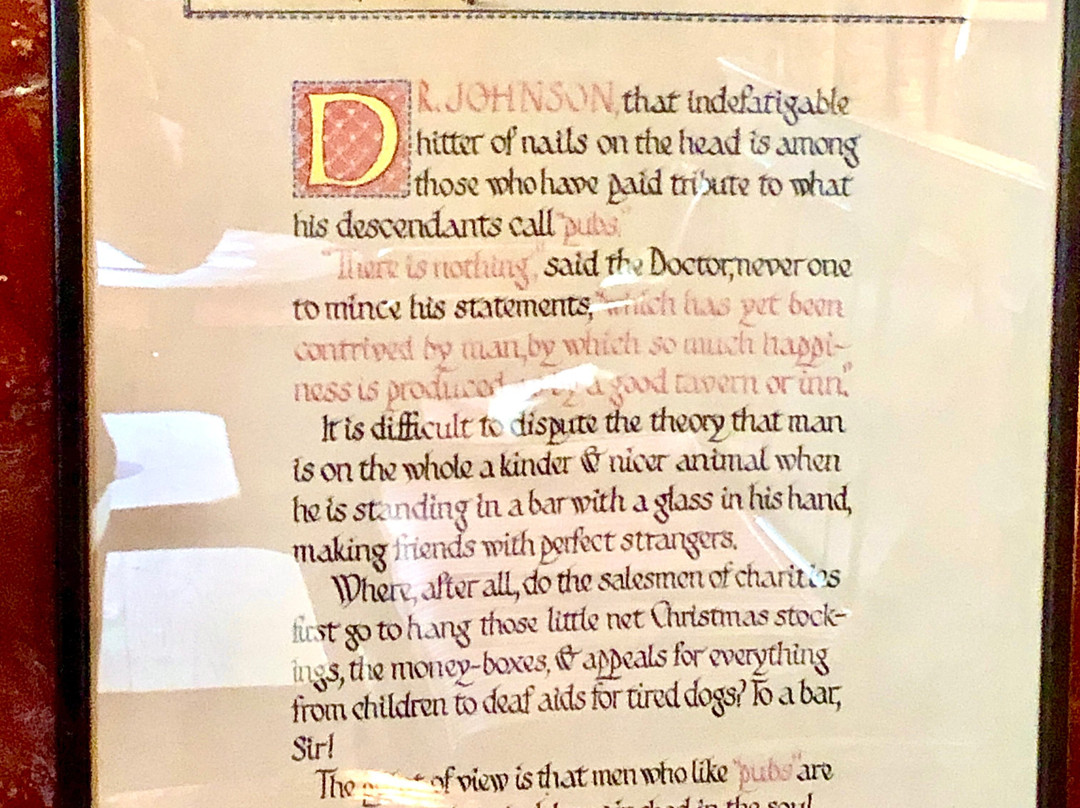 DR. JOHNSON, that indefatigable
hitter of nails on the head is among
those who have paid tribute to what
his descendants call "pubs."
"There is nothing," said the Doctor, never one
to mince his statements, "which has yet been
contrived by man, by which so much happi-
ness is produced by a good tavern or inn."
It is difficult to dispute the theory that man
is on the whole a kinder & nicer animal when
he is standing in a bar with a glass in his hand,
making friends with perfect strangers.
Where, after all, do the salesmen of charities
first go to hang those little net Christmas stock-
ings, the money-boxes, & appeals for everything
from children to deaf aids for tired dogs? To a bar,
Sir!
The of view is that men who like "pubs" are
in the soul